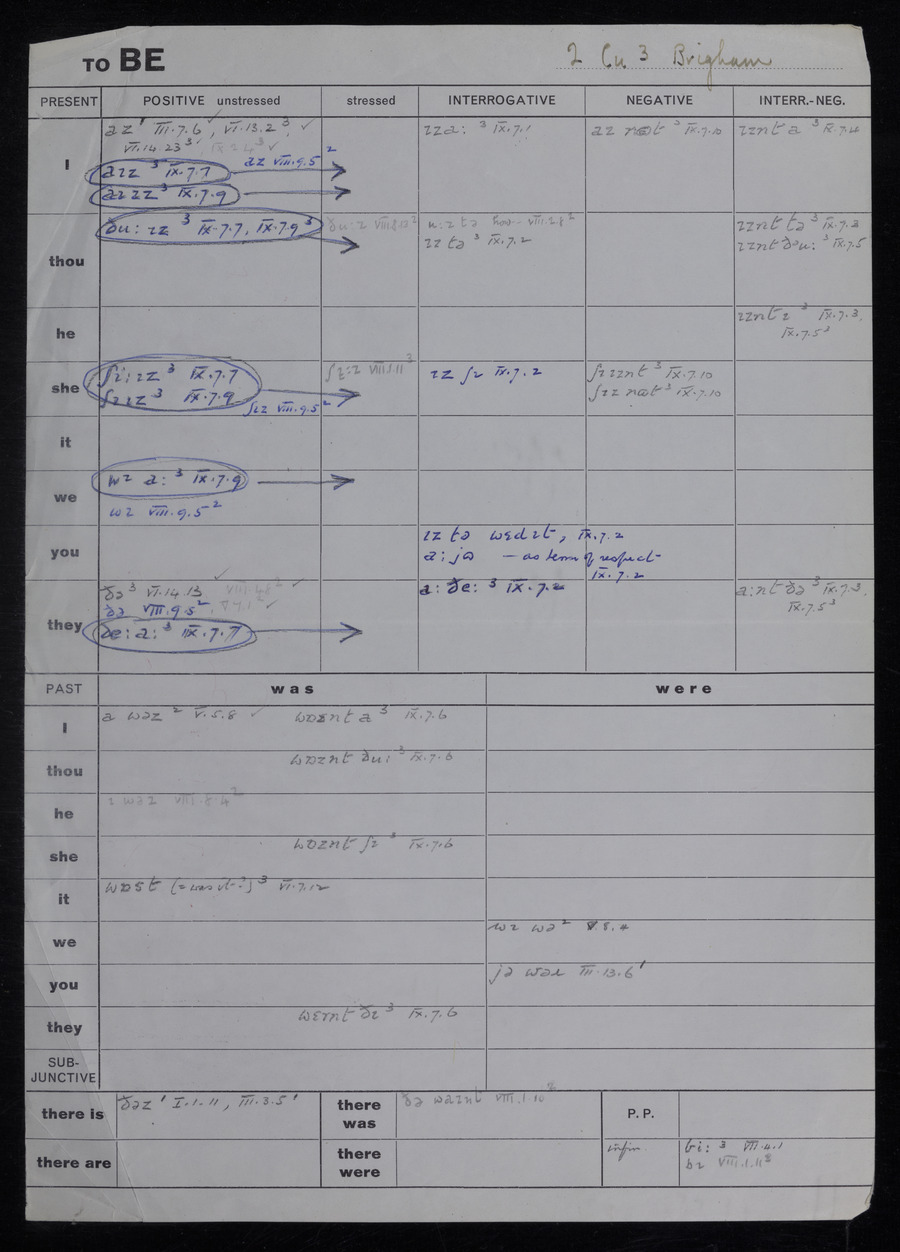 TO BE
2 Cu 3 Brigham
PRESENT POSITIVE unstressed stressed INTERROGATIVE NEGATIVE INTERR.-NEG.
I
az¹ III.7.6, VI.13.2³, ✓
VI.14.23³
aɪz ³ IX.7.7
az VIII.9.5²
³ IX.7.9
ɪz a: ³ IX.7.1
az nɒt ³ IX.7.10
ɪznt a ³ IX.7.4
thou
ðu: ɪz ³ IX.7.7, IX.7.9³
ɪz tə ³ IX.7.2
ɪznt tə ³ IX.7.3
ɪznt ðu: ³ IX.7.5
he
ɪznt ɪ ³ IX.7.3,
IX.7.5³
she
ʃi: ɪz ³ IX.7.7
ʃɪ ɪz ³ IX.7.9
ʃɪz VIII.9.5²
ɪz ʃɪ IX.7.2
ʃɪ ɪznt ³ IX.7.10
ʃɪz nɒt ³ IX.7.10
it
we
wɪ a: ³ IX.7.9
wɪ VIII.9.5²
you
ɪz tə wɛdɪt, IX.7.2
a: jə — as term of respect
IX.7.2
they
ðə ³ VI.14.13
ðə VIII.9.5²
ðe: a: ³ IX.7.7
a: ðe: ³ IX.7.2
a:nt ðə ³ IX.7.3,
IX.7.5³
PAST was were
I
a wəz ² V.5.8 ✓ wɒznt a ³ IX.7.6
thou
wɒznt ðu: ³ IX.7.6
he
ɪ wəz VIII.8.4²
she
wɒznt ʃɪ ³ IX.7.6
it
wɒst (= was it?) ³ VI.7.12
we
wɪ wə ² V.8.4
you
jə wəɪ III.13.6¹
they
wɛrnt ðɪ ³ IX.7.6
SUB-
JUNCTIVE
there is
ðəz¹ I.1.11, III.3.5¹
there
was
ðə waznt VIII.1.10²
P.P.
there are
there
were
infin.
bi: ³ VII.4.1
bɪ VIII.1.11²